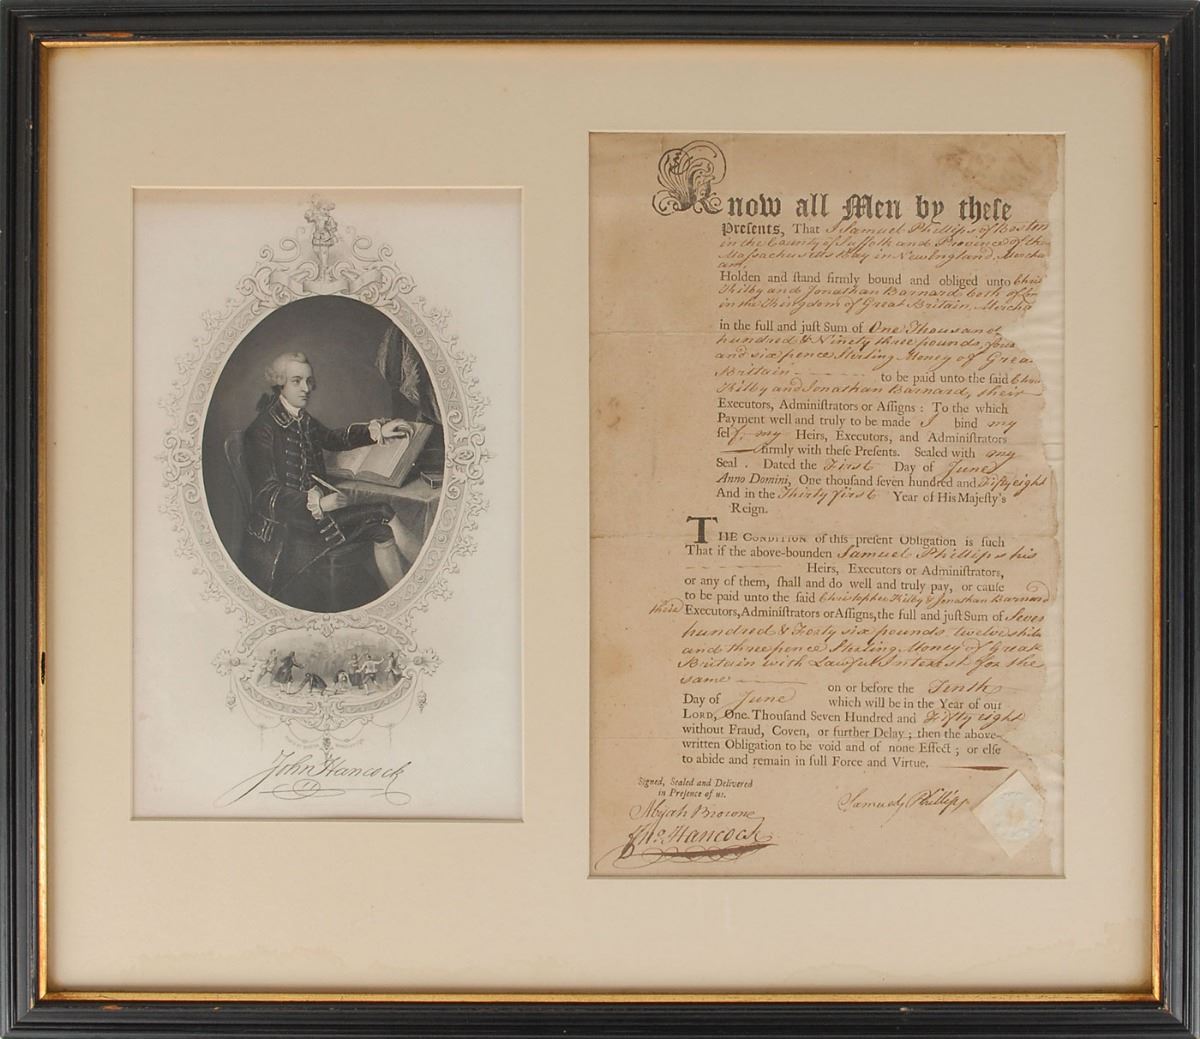 John Hancock
Know all Men by these
Presents, That I Samuel Phillips of Boston
in the County of Suffolk and Province of the
Massachusetts Bay in New England, Mercha
Holden and stand firmly bound and obliged unto Chris
Kilby and Jonathan Barnard both of Lon
in the Kingdom of Great Britain, Mercha
in the full and just Sum of One Thousand
hundred & Ninety three pounds, four
and six pence Sterling Money of Grea
Britain to be paid unto the said Chris
Kilby and Jonathan Barnard, their
Executors, Administrators or Assigns: To the which
Payment well and truly to be made I bind my
self, my Heirs, Executors, and Administrators
firmly with these Presents. Sealed with my
Seal. Dated the First Day of June
Anno Domini, One thousand seven hundred and Fifty eight
And in the Thirty first Year of His Majesty's
Reign.
THE CONDITION of this present Obligation is such
That if the above-bounden Samuel Phillips his
Heirs, Executors or Administrators,
or any of them, shall and do well and truly pay, or cause
to be paid unto the said Christopher Kilby & Jonathan Barnard
their Executors, Administrators or Assigns, the full and just Sum of Seven
hundred & Forty six pounds twelve shill
and three pence Sterling Money of Great
Britain with Lawful Interest for the
same on or before the Tenth
Day of June which will be in the Year of our
LORD, One Thousand Seven Hundred and Fifty eight
without Fraud, Coven, or further Delay; then the above-
written Obligation to be void and of none Effect; or else
to abide and remain in full Force and Virtue.
Signed, Sealed and Delivered
in Presence of us.
Abijah Browne
Jno. Hancock
Samuel Phillips